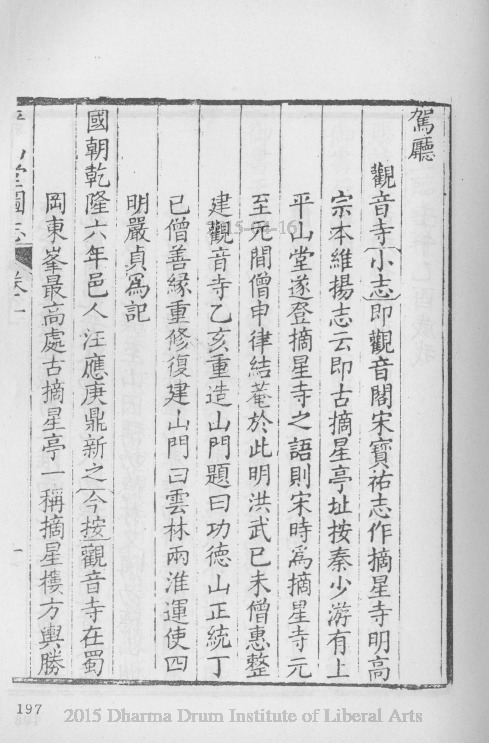 駕廳
觀音寺小志即觀音閣宋寶祐志作摘星寺明高
宗本維揚志云即古摘星亭址按秦少游有上
平山堂遂登摘星寺之語則宋時爲摘星寺元
至元間僧申律結菴於此明洪武己未僧惠整
建觀音寺乙亥重造山門題曰功德山正統丁
巳僧善緣重修復建山門曰雲林兩淮運使四
明嚴貞爲記
國朝乾隆六年邑人汪應庚鼎新之今按觀音寺在蜀
岡東峯最高處古摘星亭一稱摘星樓方輿勝
山堂圖志 卷一
197
2015 Dharma Drum Institute of Liberal Arts